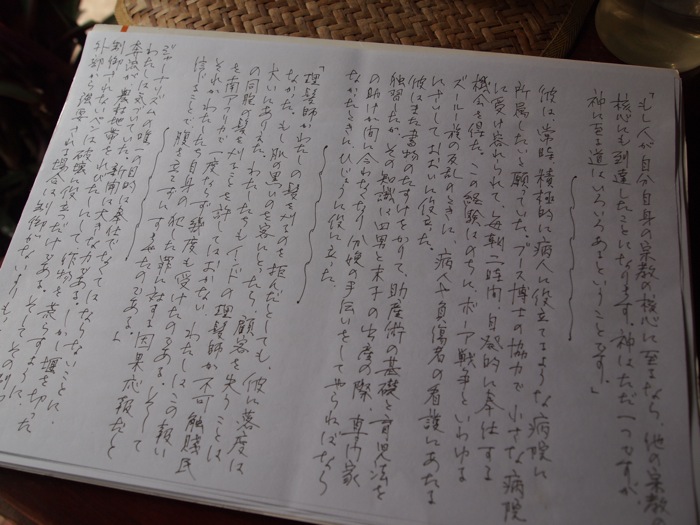 「もし人が自分自身の宗教の核心に至るなら、他の宗教の
核心にも到達したことになります。神はただ一つですが、
神に至る道はいろいろあるということです。」
彼は、常時、積極的に病人に役立てるような病院に
所属したいと願っていた。ブース博士の協力で、小さな病院
に受け容れられて、毎朝二時間、自発的に奉仕する
機会を得た。この経験はのちにボーア戦争といわゆる
ズールー族の反乱のときに、病人や負傷者の看護にあたる
にさいして、おおいに役立った。
彼はまた書物のたすけをかりて、助産術の基礎と育児法を
独習したが、その知識は四男と末子の出産の際、専門家
の助けが間に合わなくなり、分娩の手伝いをしてやらねばなら
なかったときに、ひじょうに役に立った。
「理髪師がわたしの髪を刈るのを拒んだとしても、彼に落度は
なかった。もし肌黒いのを客にとったら、顧客を失うことは
大いにありえた。わたしたちもインドの理髪師が不可触賤民
の同胞の髪を刈ることを許してはおかない。わたしはこの報い
を南アフリカで一度ならず幾度も受けたのである。そして
それがわたしたち自身の犯した罪に対する因果応報だと
信じることで、腹も立てずにすんだのである。」
ジャーナリズムの唯一の目的は奉仕でなくてはならないことに、
わたしは気づいていた。新聞は大きな力である。しかし、堰を切った
奔流が、農村地帯を水びたしにして、作物を荒らすように、
制御されないペンは破壊に役立つだけである。そしてその制御が
外部から強要される場合は、制御がないよりも